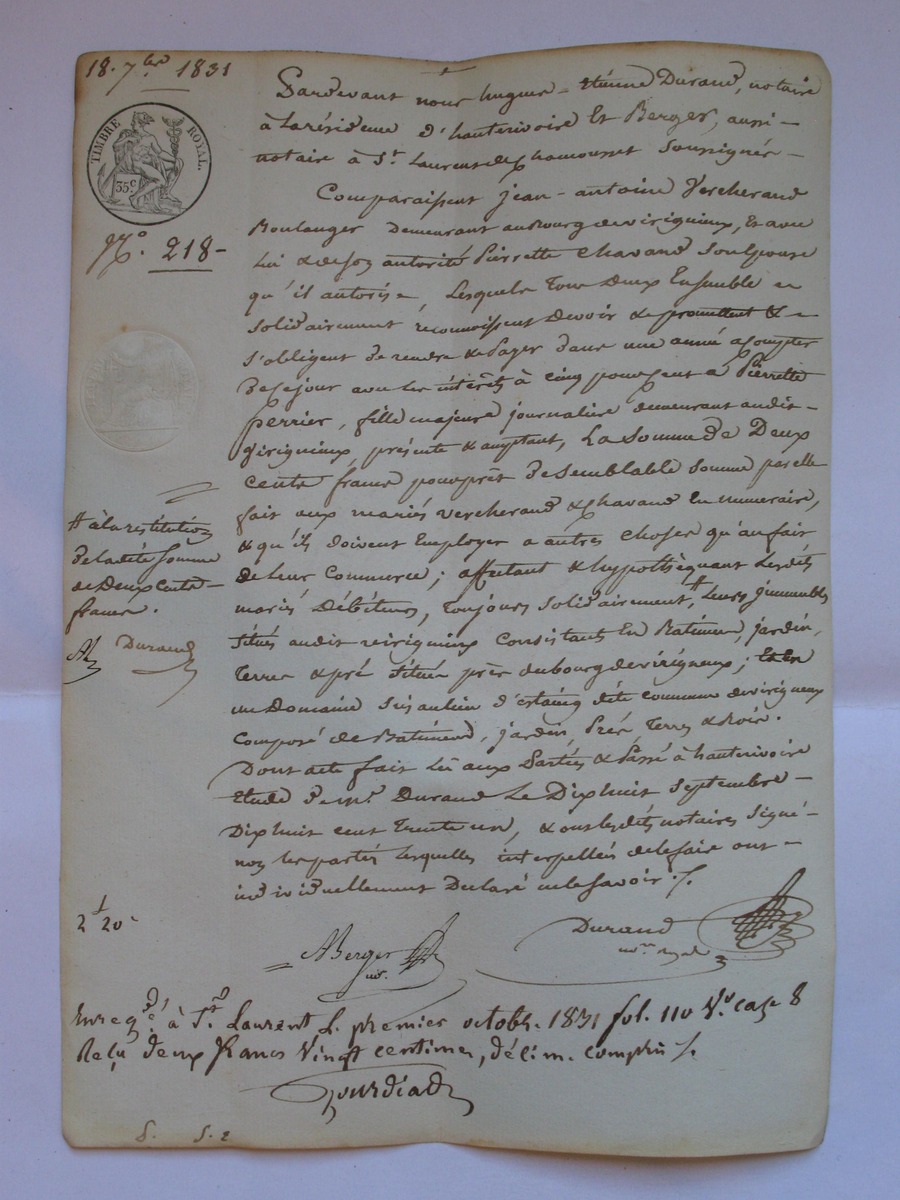 18. 7bre 1831
TIMBRE ROYAL.
35 c
No. 218-
Pardevant nous hugues-etienne Durand, notaire
à La résidence d'hauterivoire Et Berger, aussi-
notaire à St. Laurent de Chamousset Soussignés-
Comparaissent jean-antoine Vercherand
Boulanger Demeurant au Bourg de virigneux, Et avec
Lui & de son autorité Pierrette Chavand Son Epouse
qu'il autorise, Lesquels Tous Deux Ensemble et
Solidairement reconnoissent Devoir & promettent &
S'obligent de rendre & Payer dans une année a Compter
De ce jour avec les interêts à cinq pour cent a Pierrette
perrier, fille majeure journaliere demeurant audit-
Virigneux, présente & acceptant, La Somme de Deux
Cents francs pour prêt De Semblable Somme par elle
fait aux mariés Vercherand & Chavand En numeraire,
& qu'ils doivent Employer a autres Choses qu'au fait
de Leur Commerce; affectant & hypothéquant Lesdits
mariés Débiteurs, Toujours Solidairement, # Leurs jmmeubles
Situés audit virigneux Consistants En Batiment, jardin,
Terres & pré Situés près du bourg de virigneux; Et en
un Domaine Sis au lieu d' dite commune de virigneux
Composé de Batiments, jardin, Prés, Terres & Bois.
Dont acte fait Lu aux Parties & Passé à hauterivoire
Etude de me. Durand Le Dix huit Septembre-
Dix huit cent Trente un, & ont lesdits notaires Signé-
non les parties Lesquelles interpellées de le faire ont-
individuellement Declaré ne le Savoir ./.
# à la restitution
de ladite Somme
de Deux Cents-
francs.
AB Durand
2 f 20 c
ABerger
no.
Durand
nore. royal
Enregé. à St. Laurent L. premier octobre. 1831 fol. 110 Vo. case 8
Reçu deux francs Vingt centimes, décime compris ./.